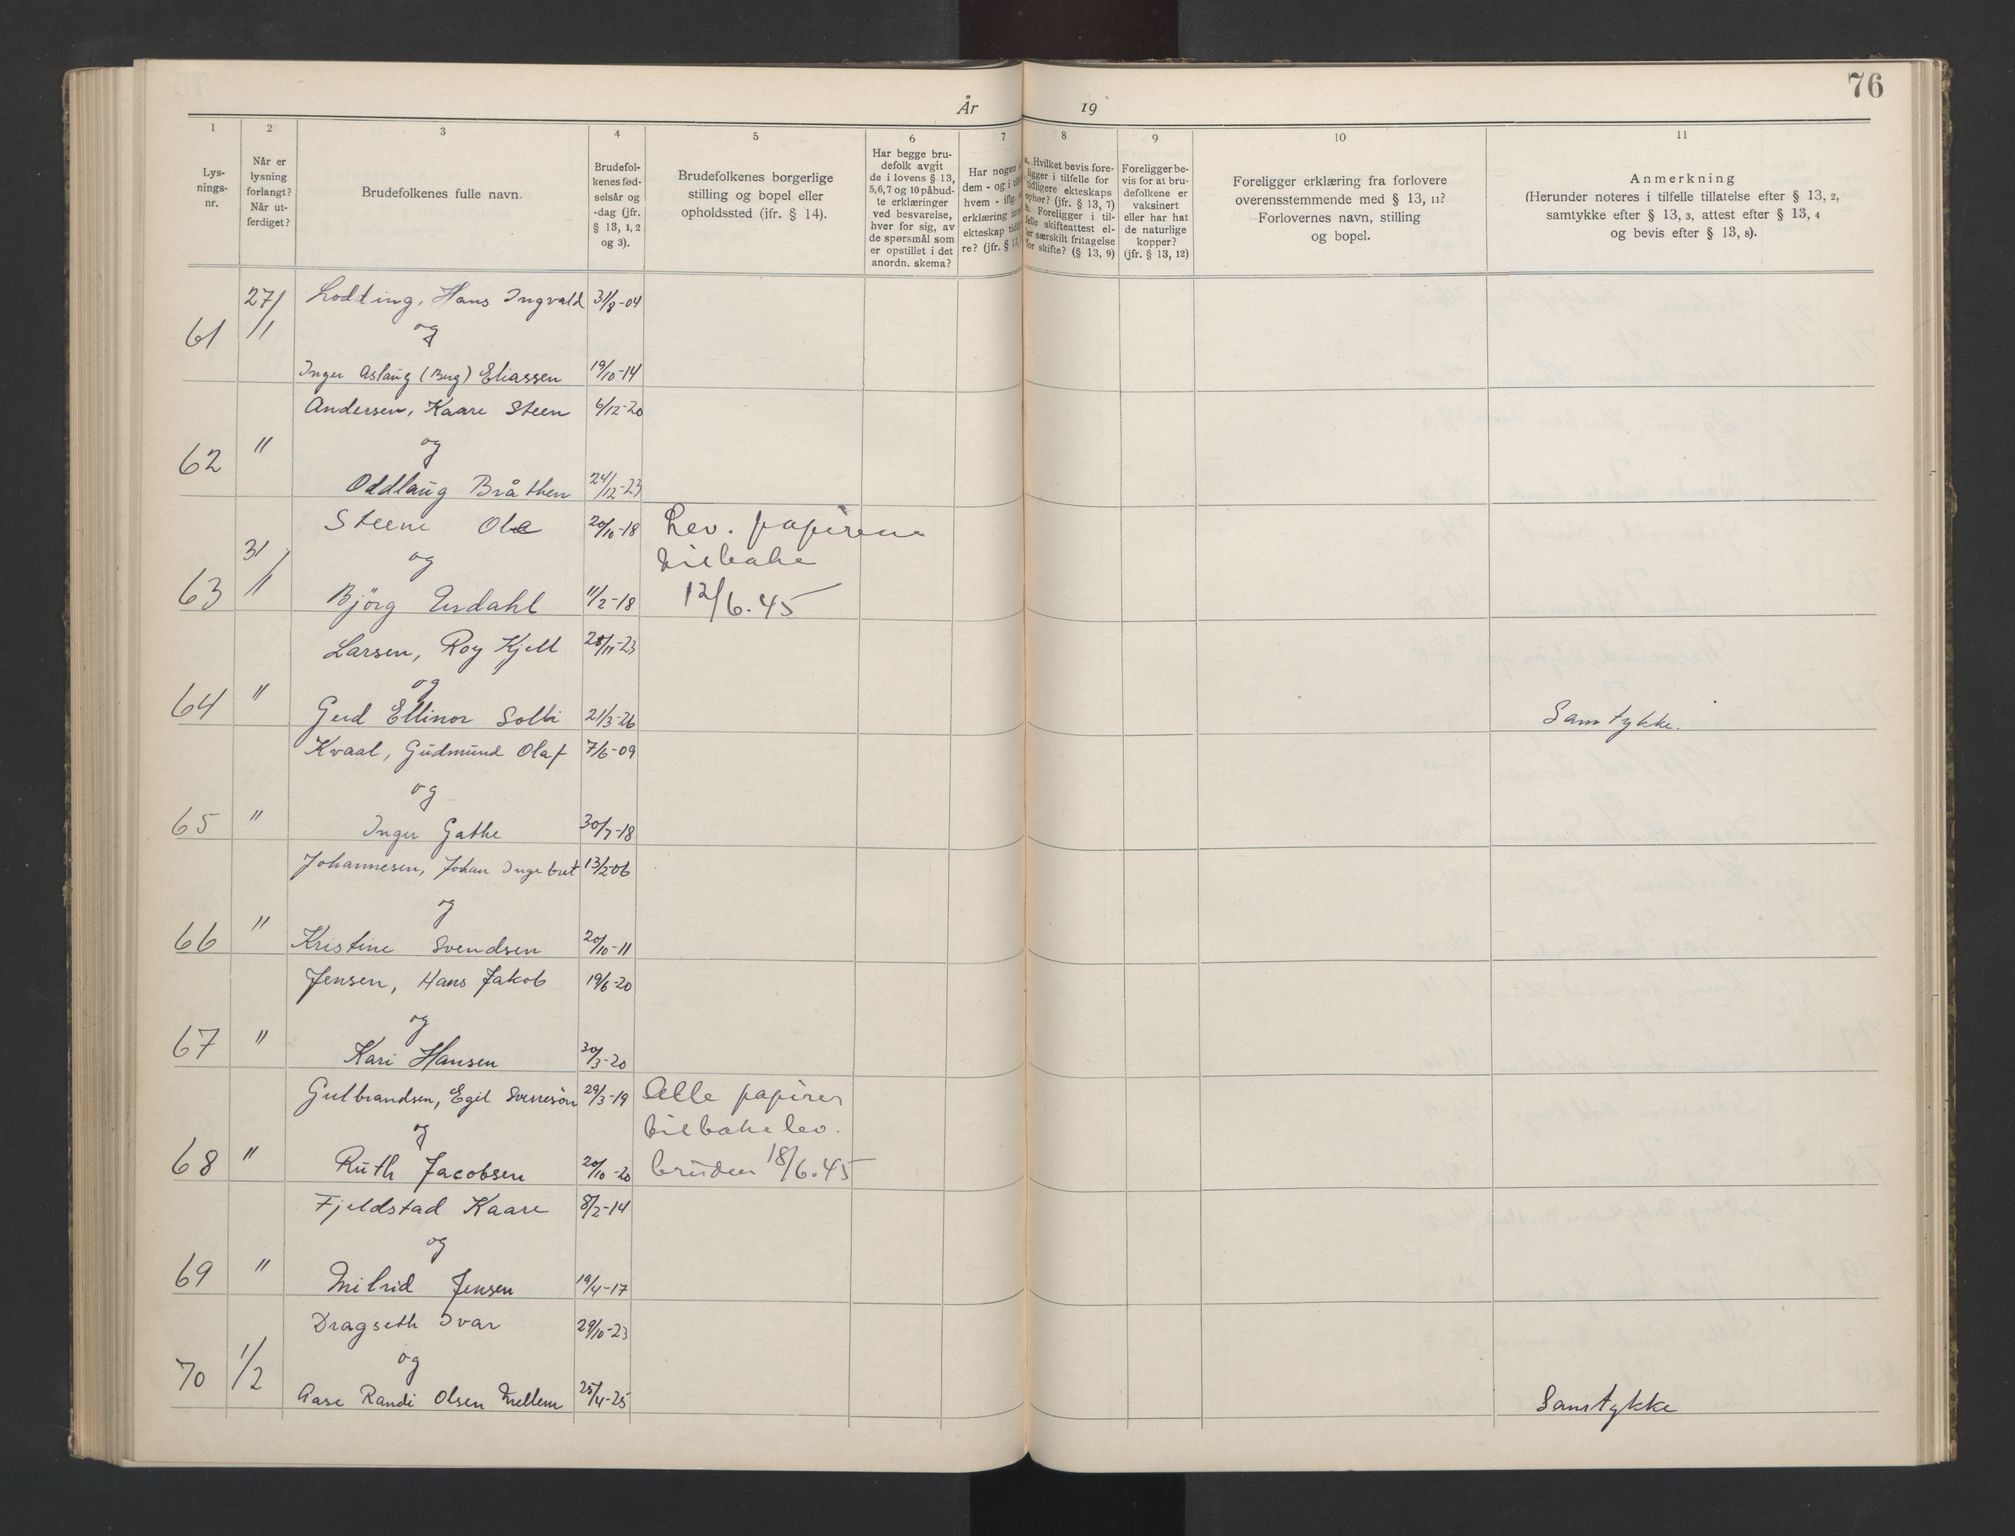 76
År 19
1 2 3 4 5 6 7 8 9 10 11
Lys-
nings-
nr.
Når er
lysning
forlangt?
Når ut-
ferdiget?
Brudefolkenes fulle navn.
Brudefol-
kenes fød-
selsår og
-dag (jfr.
§ 13, 1, 2
og 3).
Brudefolkenes borgerlige
stilling og bopel eller
opholdssted (jfr. § 14).
Har begge bru-
defolk avgit
de i lovens § 13,
5, 6, 7 og 10 påbud-
te erklæringer
ved besvarelse,
hver for sig, av
de spørsmål som
er opstillet i det
anordn. skema?
Har nogen
dem - og i
hvem - iflg.
erklæring
ekteskap
re? (jfr. § 13,
a. Hvilket bevis fore-
ligger i tilfelle for
tidligere ekteskaps
ophør? (jfr. § 13, 7)
b. Foreligger i til-
felle skifteattest el-
ler særskilt fritagelse
for skifte? (§ 13, 9)
Foreligger be-
vis for at bru-
defolkene er
vaksinert
eller har hat
de naturlige
kopper?
(jfr. § 13, 12)
Foreligger erklæring fra forlovere
overensstemmende med § 13, 11?
Forlovernes navn, stilling
og bopel.
Anmerkning
(Herunder noteres i tilfelle tillatelse efter § 13, 2,
samtykke efter § 13, 3, attest efter § 13, 4
og bevis efter § 13, 8).
27/1 Lodting, Hans Ingvald 31/8-04
61 og
Inger Aslaug (Berg) Eliassen 19/10-14
Andersen, Kaare Steen 6/12-20
62 " og
Oddlaug Bråthen 24/12-23
Steene Ole 20/10-18 Lev. papirene
31/1 og tilbake
63 Bjørg Urdahl 11/2-18 12/6.45
Larsen, Roy Kjell 28/11-23
64 " og
Gerd Ellinor Solli 21/3-26 Samtykke.
Kvaal, Gudmund Olaf 7/6-09
og
65 " Inger Gathe 30/7-18
Johannesen, Johan Ingebret 13/2-06
og
66 " Kristine Svendsen 20/10-11
Jensen, Hans Jakob 19/6-20
og
67 " Kari Hansen 30/3-20
Gulbrandsen, Egil Sverresøn 29/3-19 Alle papirer
og tilbakelev.
68 " Ruth Jacobsen 20/10-20 bruden 18/6.45
Fjeldstad Kaare 8/2-14
og
69 " Milrid Jensen 19/4-17
Dragseth Ivar 29/10-23
70 1/2 og
Aase Randi Olsen Mellem 25/4-25 Samtykke